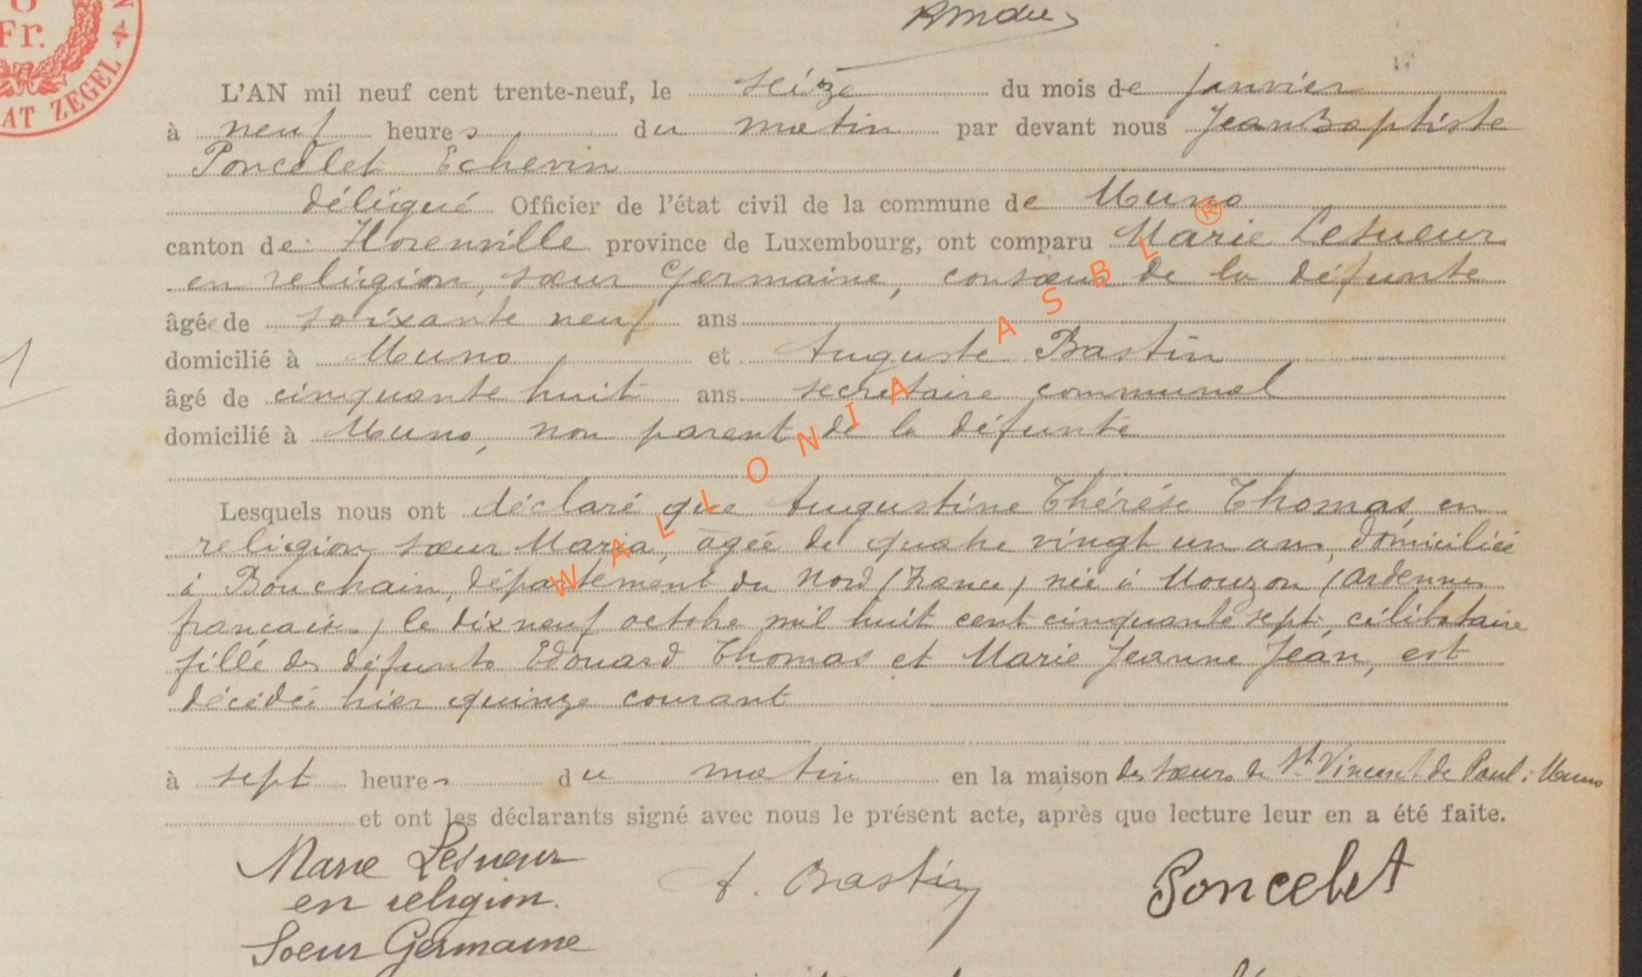 Fr.
AT ZEGEL
L'AN mil neuf cent trente-neuf, le seize du mois de janvier
à neuf heures du matin par devant nous Jean Baptiste
Poncelet Echevin
délégué Officier de l'état civil de la commune de Muno
canton de Florenville province de Luxembourg, ont comparu Marie Lesueur
en religion, sœur Germaine, consœur de la défunte
âgée de soixante neuf ans
domicilié à Muno et Auguste Bastin
âgé de cinquante huit ans secrétaire communal
domicilié à Muno, non parent de la défunte
Lesquels nous ont déclaré que Augustine Thérèse Thomas en
religion, sœur Maria, âgée de quatre vingt un ans, domiciliée
à Bouchain, département du Nord (France) née à Mouzon (Ardennes
françaises) le dix neuf octobre mil huit cent cinquante sept, célibataire
fille des défunts Edouard Thomas et Marie Jeanne Jean, est
décédée hier quinze courant
à sept heures du matin en la maison des sœurs de St. Vincent de Paul à Muno
et ont les déclarants signé avec nous le présent acte, après que lecture leur en a été faite.
Marie Lesueur A. Bastin Poncelet
en religion.
Soeur Germaine
WALLONIA ASBL ®